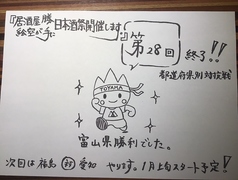 「居酒屋 勝
日本酒祭開催します」
第28回
終了!!
都道府県別対抗戦
TOYAMA
富山県勝利でした。
次回は 福島 対 愛知 やります。1月上旬スタート予定!